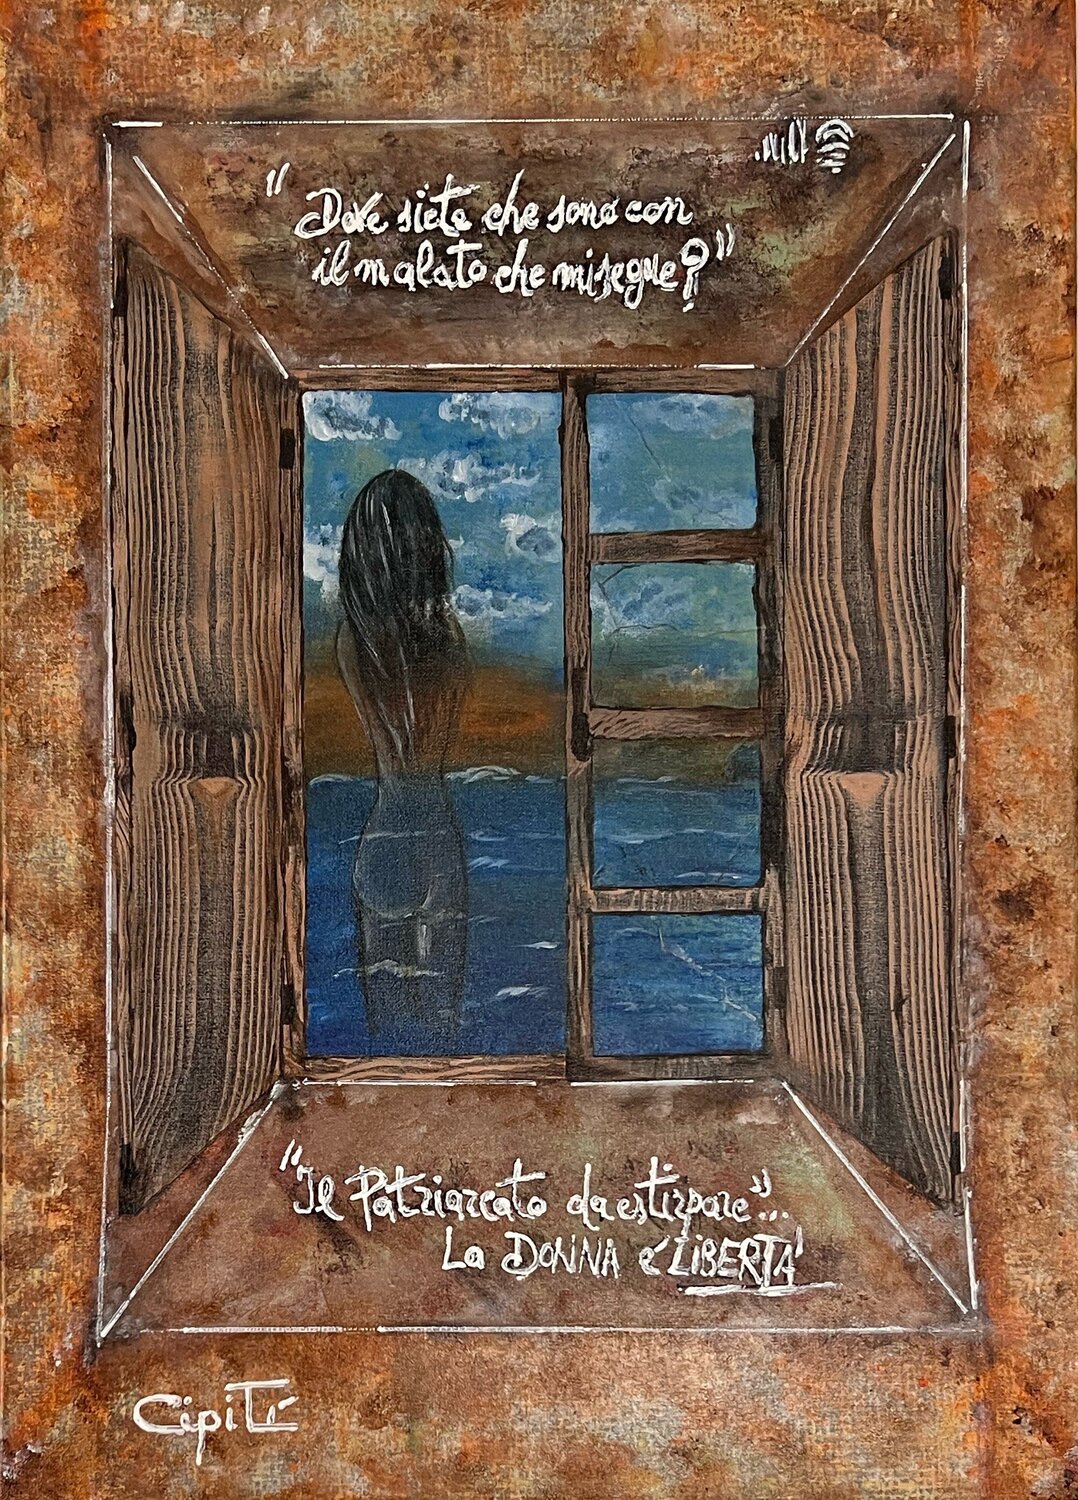 "Dove siete che sono con
il malato che mi segue?"
"Il Patriarcato da estirpare"...
La DONNA è LIBERTA'
CipiTì